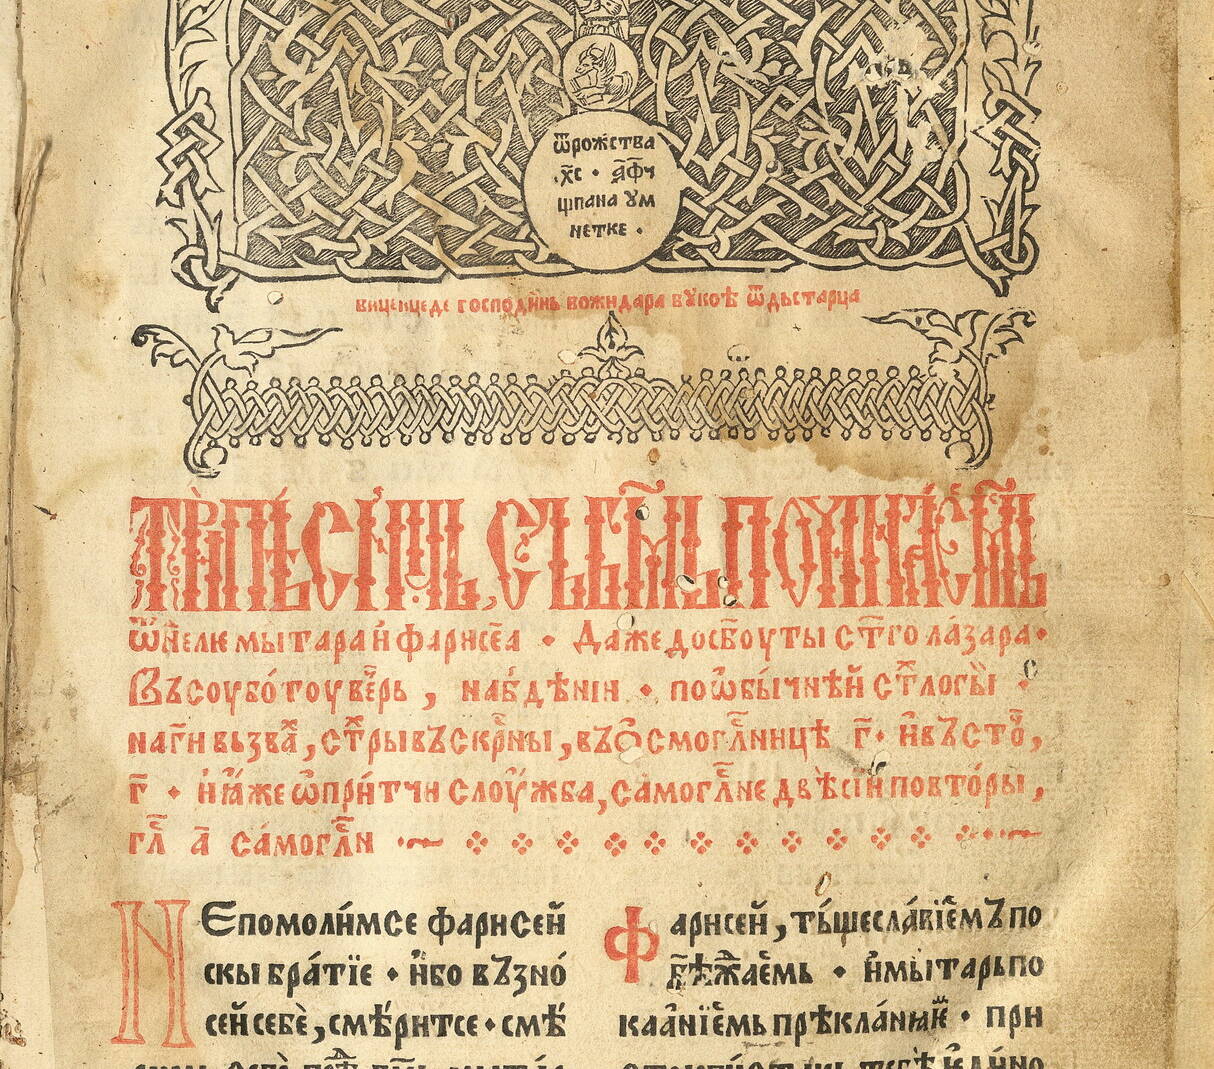 ѿрожⷭ҇тва
х҃с · ҂а҃фч
щпана ꙋм
нетке ·
виценцеде господинь божидара вꙋковѣ ѿдьстарца
Трⷪ҇пѣснць, съ бг҃ѡⷨ҇ь почина́емь
Ѿнⷣе́лю мытара и҆ фарисе́а · Даже до сꙋⷠ҇оты ст҃го ла́зара ·
Въ соубо́тоу ве́ⷱ҇рь , на бдѣни · по ѡ҆бы́чнѣи стⷯлогы̀ ·
на гⷭ҇и вьзваⷯ , стⷯры въскрⷭ҇ны , въѻ҆смоглⷭ҇ннцѣ г҃· и҆ въсто́ⷱ ,
г҃ · и҆ ꙗ҆же ѡ҆ при́тчи слоу́жба , самоглⷭ҇не двѣ си повто́ры ,
глⷭ҇ а҃ са́моглⷭ҇н
Не помоли́мсе фарисе́й
скы бра́тїе · и҆бо възно́
сей себѐ , смѣ́ритсе · смѣ́
Фарисей , тъ́щесла́вїемъ по
бѣжⷣае́мь · и҆ мы́тарь по
каа́нїемь прѣкла́ніаⷨ · при